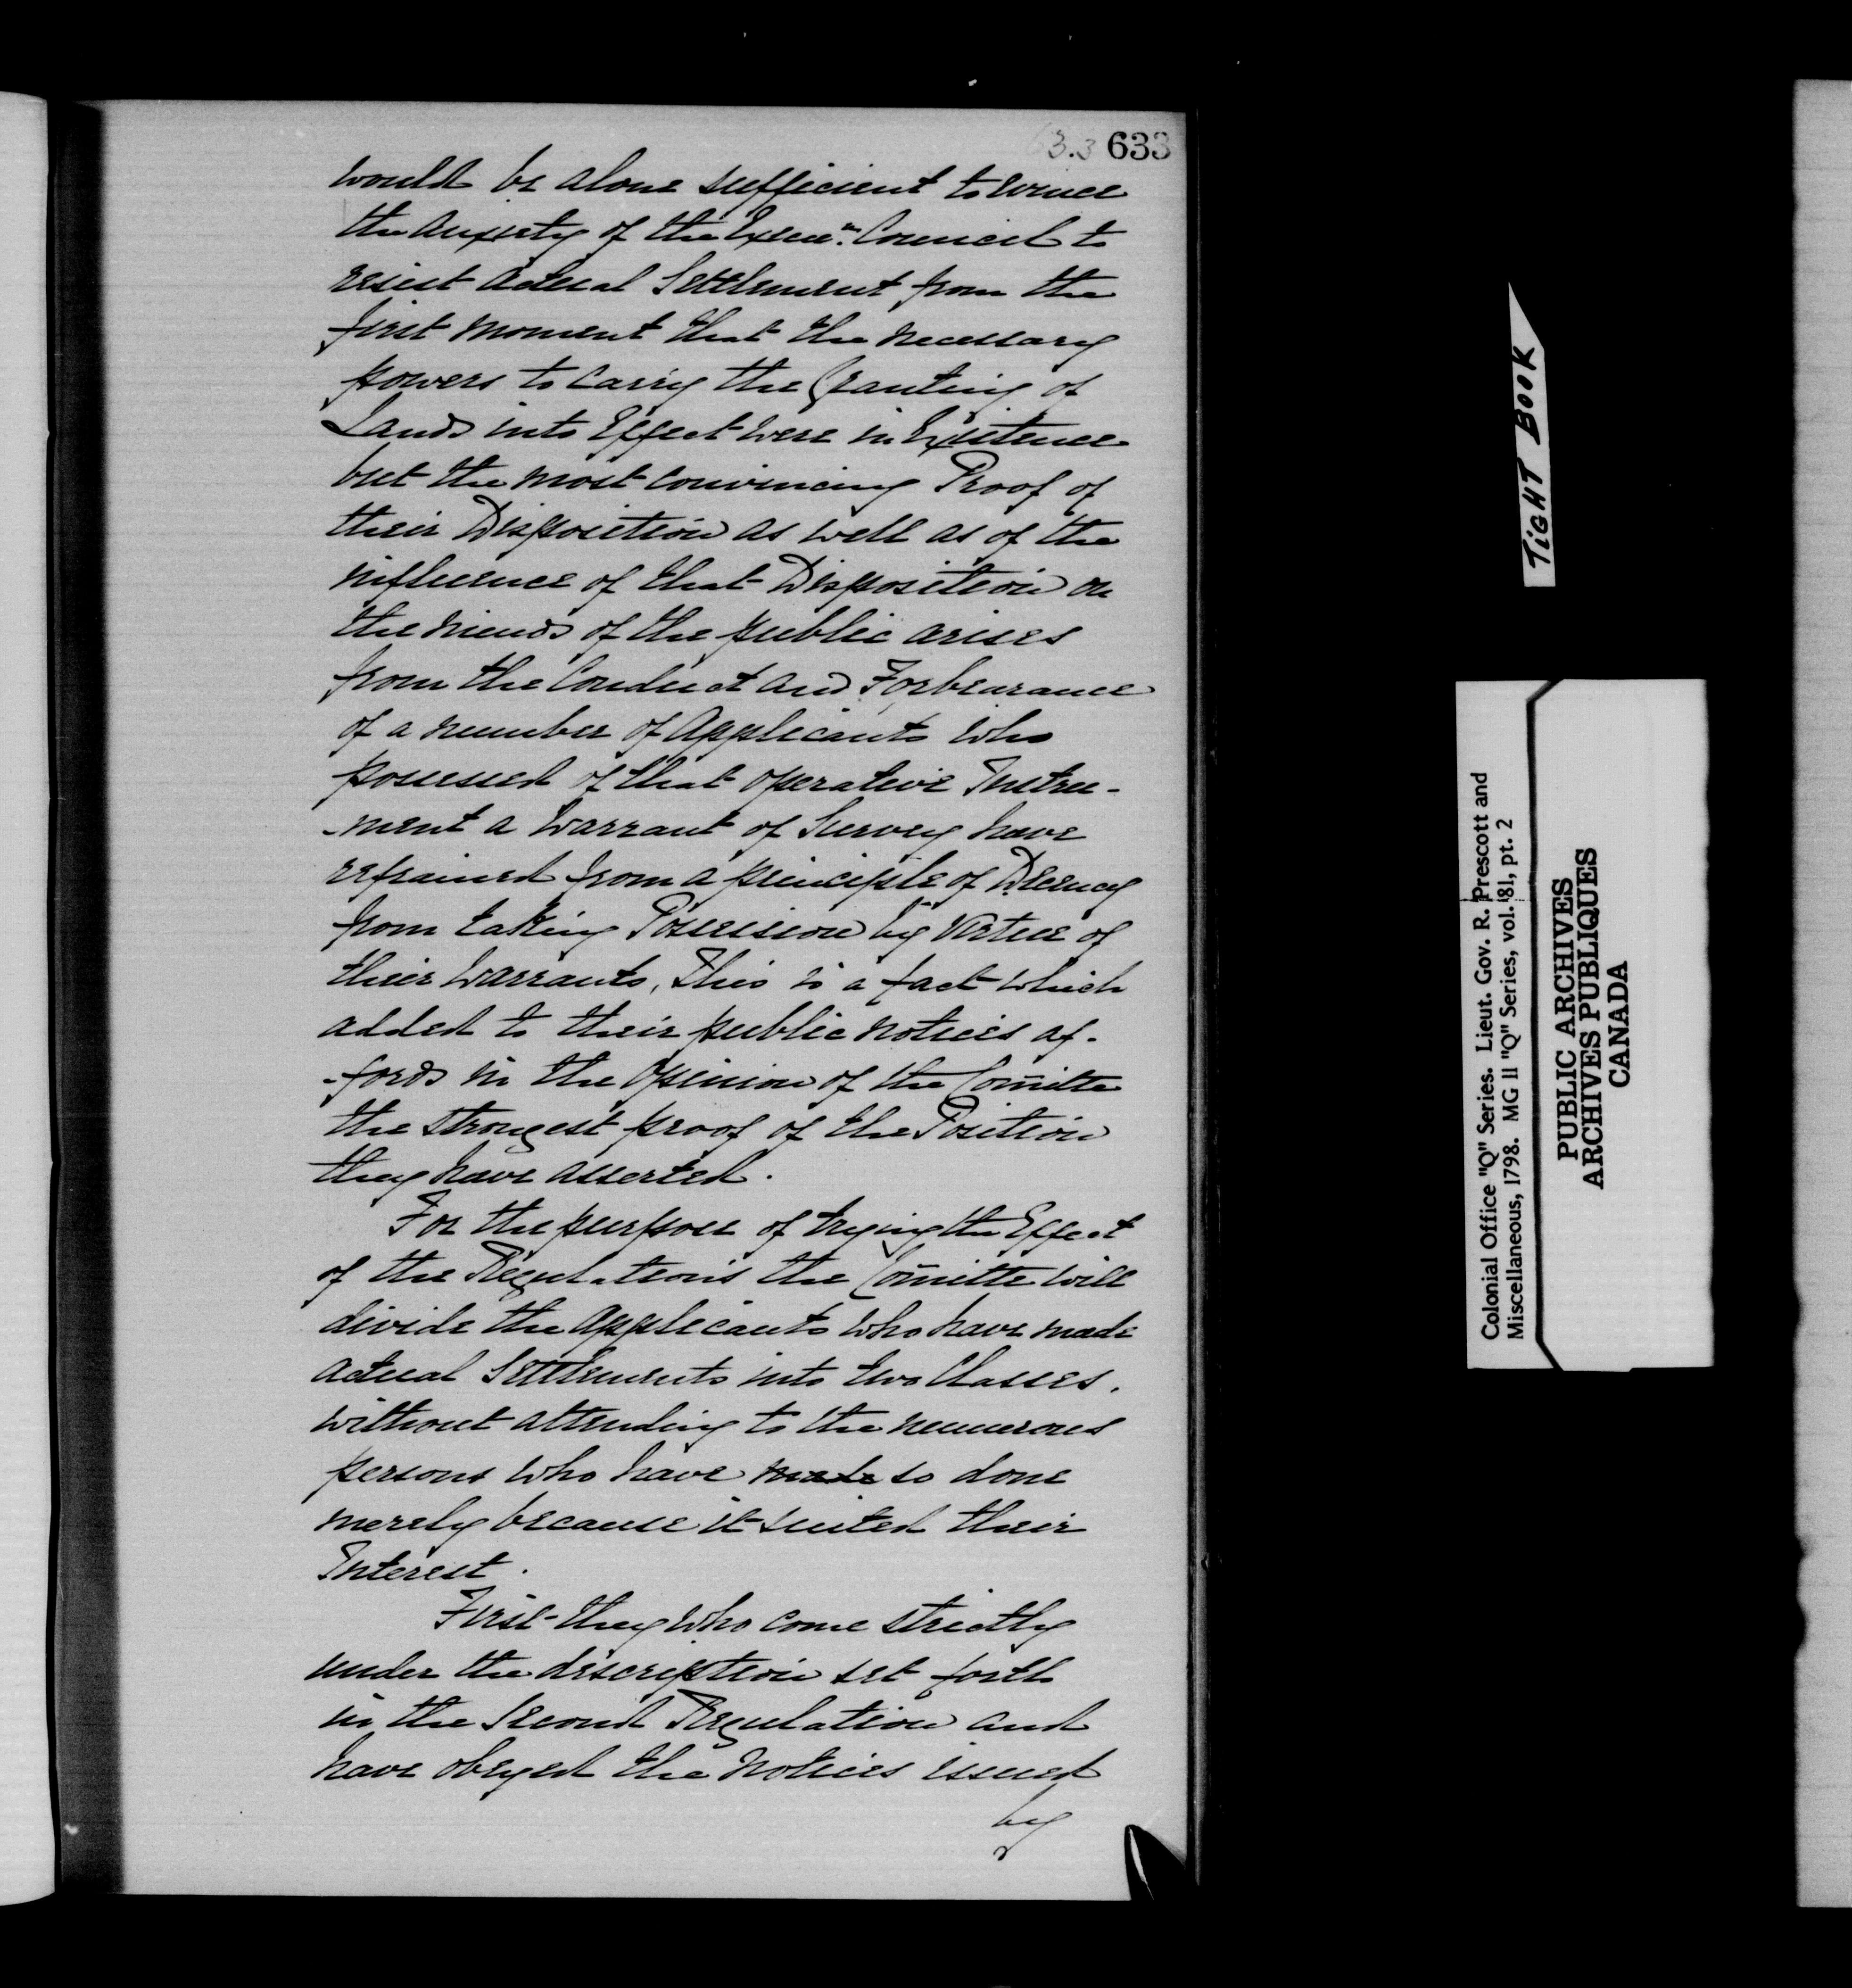 63.3 633
would be alone sufficient to evince
the anxiety of the Execu.ve Council to
resist actual Settlement from the
first moment that the necessary
powers to carry the Granting of
Lands into Effect were in Existence
but the most convincing Proof of
their Disposition as well as of the
influence of that Disposition on
the minds of the public arises
from the Conduct and Forbearance
of a number of Applicants who
possessed of that operative Instru-
-ment a Warrant of Survey have
refrained from a principle of Decency
from taking Possession by Virtue of
their Warrants, This is a fact which
added to their public notices af-
-fords in the Opinion of the Com̄itte
the strongest proof of the Position
they have asserted.
For the purpose of trying the Effect
of the Regulations the Com̄itte will
divide the Applicants who have made
actual Settlements into two Classes.
without attending to the numerous
persons who have made so done
merely because it suited their
Interest.
First they who come strictly
under the description set forth
in the Second Regulation and
have obeyed the Notices issued
by
TIGHT BOOK
Colonial Office "Q" Series. Lieut. Gov. R. Prescott and
Miscellaneous, 1798. MG 11 "Q" Series, vol. 81, pt. 2
PUBLIC ARCHIVES
ARCHIVES PUBLIQUES
CANADA